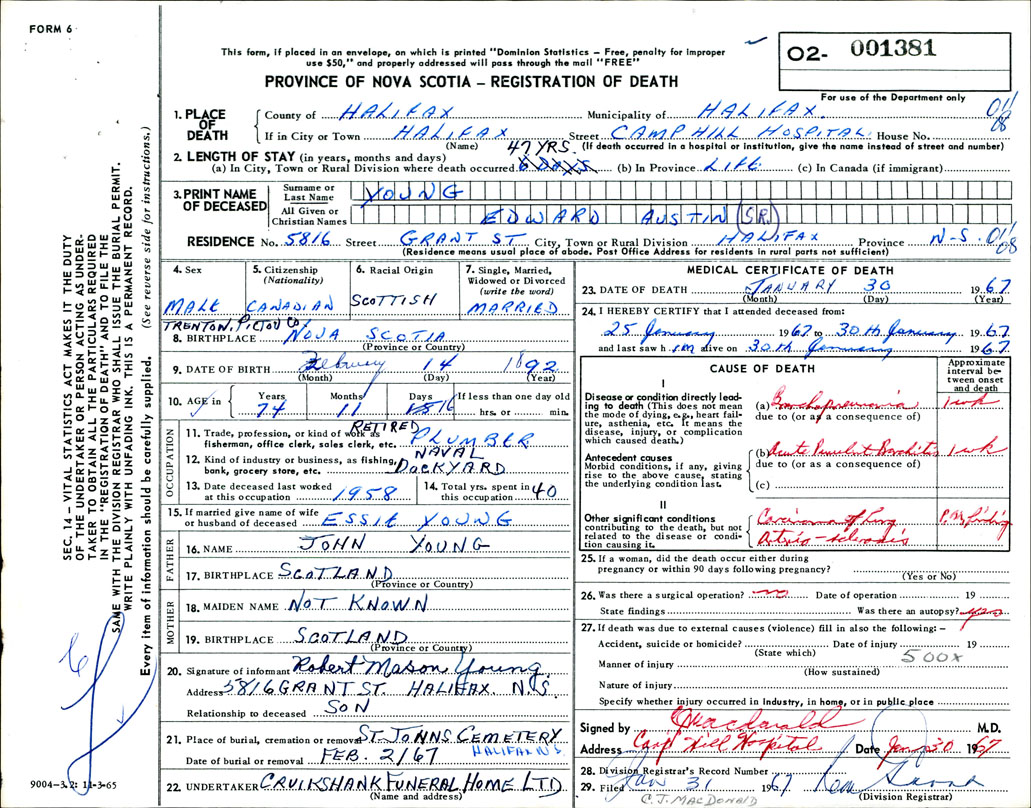 FORM 6
This form, if placed in an envelope, on which is printed "Dominion Statistics – Free, penalty for improper
use $50," and properly addressed will pass through the mail "FREE"
PROVINCE OF NOVA SCOTIA – REGISTRATION OF DEATH
O2- 001381
For use of the Department only
1. PLACE OF DEATH
County of HALIFAX Municipality of HALIFAX.
If in City or Town HALIFAX Street CAMP HILL HOSPITAL House No.
(Name) 47 YRS. (If death occurred in a hospital or institution, give the name instead of street and number)
2. LENGTH OF STAY (in years, months and days)
(a) In City, Town or Rural Division where death occurred 6 DAYS (b) In Province LIFE (c) In Canada (if immigrant)
3. PRINT NAME OF DECEASED
Surname or Last Name YOUNG
All Given or Christian Names EDWARD AUSTIN SR.
RESIDENCE No. 5816 Street GRANT ST City, Town or Rural Division HALIFAX Province N-S.
(Residence means usual place of abode. Post Office Address for residents in rural parts not sufficient)
4. Sex
MALE
5. Citizenship
(Nationality)
CANADIAN
6. Racial Origin
SCOTTISH
7. Single, Married,
Widowed or Divorced
(write the word)
MARRIED
TRENTON, PICTOU Co.
8. BIRTHPLACE NOVA SCOTIA
(Province or Country)
9. DATE OF BIRTH February 14 1892
(Month) (Day) (Year)
10. AGE in Years Months Days If less than one day old
74 11 16 hrs. or min.
OCCUPATION
RETIRED
11. Trade, profession, or kind of work as
fisherman, office clerk, sales clerk, etc. PLUMBER
12. Kind of industry or business, as fishing, NAVAL
bank, grocery store, etc. DOCKYARD
13. Date deceased last worked
at this occupation 1958
14. Total yrs. spent in
this occupation 40
15. If married give name of wife
or husband of deceased ESSIE YOUNG
FATHER
16. NAME JOHN YOUNG
17. BIRTHPLACE SCOTLAND
(Province or Country)
MOTHER
18. MAIDEN NAME NOT KNOWN
19. BIRTHPLACE SCOTLAND
(Province or Country)
20. Signature of informant Robert Mason Young
Address 5816 GRANT ST. HALIFAX. N.S.
Relationship to deceased SON
21. Place of burial, cremation or removal ST. JOHNS CEMETERY
HALIFAX NS
Date of burial or removal FEB. 2/67
22. UNDERTAKER CRUIKSHANK FUNERAL HOME LTD
(Name and address)
MEDICAL CERTIFICATE OF DEATH
23. DATE OF DEATH JANUARY 30 1967.
(Month) (Day) (Year)
24. I HEREBY CERTIFY that I attended deceased from:
25 January 1967 to 30th January 1967.
and last saw him alive on 30th January 1967.
CAUSE OF DEATH
Approximate
interval be-
tween onset
and death
I
Disease or condition directly lead-
ing to death (This does not mean
the mode of dying, e.g., heart fail-
ure, asthenia, etc. It means the
disease, injury, or complication
which caused death.)
(a) Bronchopneumonia 1 wk
due to (or as a consequence of)
Antecedent causes
Morbid conditions, if any, giving
rise to the above cause, stating
the underlying condition last.
(b) Acute Purulent Bronchitis 1 wk
due to (or as a consequence of)
(c)
II
Other significant conditions
contributing to the death, but not
related to the disease or condi-
tion causing it.
Carcinoma of Lung P.M. finding
Arterio-sclerosis
25. If a woman, did the death occur either during
pregnancy or within 90 days following pregnancy?
(Yes or No)
26. Was there a surgical operation? no Date of operation 19
State findings Was there an autopsy? yes
27. If death was due to external causes (violence) fill in also the following: –
Accident, suicide or homicide? Date of injury 19
(State which) 500X
Manner of injury
(How sustained)
Nature of injury
Specify whether injury occurred in Industry, in home, or in public place
Signed by Macdonald M.D.
Address Camp Hill Hospital Date Jan 30 1967
28. Division Registrar's Record Number
29. Filed Jan 31 1967
C.J. MACDONALD (Division Registrar)
SEC. 14 – VITAL STATISTICS ACT MAKES IT THE DUTY
OF THE UNDERTAKER OR PERSON ACTING AS UNDER-
TAKER TO OBTAIN ALL THE PARTICULARS REQUIRED
IN THE "REGISTRATION OF DEATH" AND TO FILE THE
SAME WITH THE DIVISION REGISTRAR WHO SHALL ISSUE THE BURIAL PERMIT.
WRITE PLAINLY WITH UNFADING INK. THIS IS A PERMANENT RECORD.
Every item of information should be carefully supplied. (See reverse side for instructions.)
9004-3.2: 11-3-65